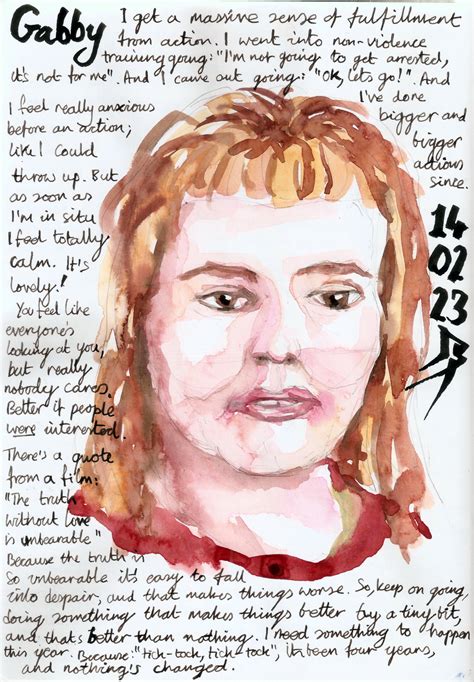 Gabby
I get a massive sense of fulfillment
from action. I went into non-violence
training going: "I'm not going to get arrested,
it's not for me". And I came out going: "Ok, let's go!". And
I've done
bigger and
bigger
actions
since.
I feel really anxious
before an action;
like I could
throw up. But
as soon as
I'm in situ
I feel totally
calm. It's
lovely!
You feel like
everyone's
looking at you,
but really
nobody cares.
Better if people
were interested.
There's a quote
from a film:
"The truth
without love
is unbearable"
Because the truth is
so unbearable it's easy to fall
into despair, and that makes things worse. So, keep on going,
doing something that makes things better by a tiny bit,
and that's better than nothing. I need something to happen
this year. Because: "tick-tock, tick-tock", it's been four years,
and nothing's changed.
14
02
23